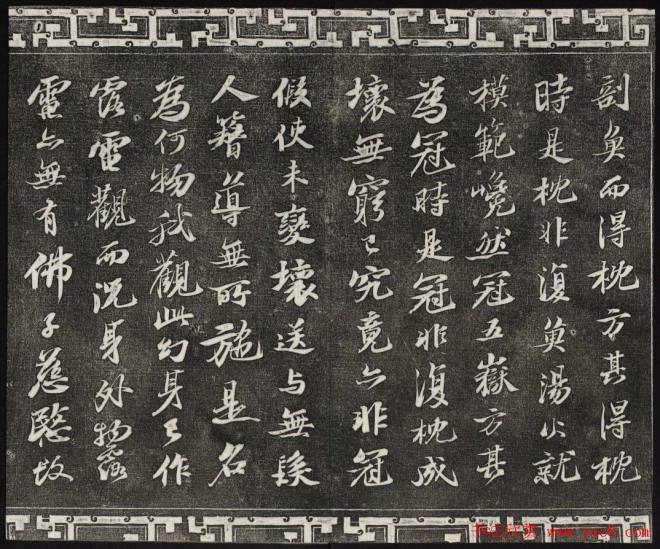 剖魚而得枕方其得枕
時是枕非復魚湯火就
模範巉然冠五嶽方其
為冠時是冠非復枕成
壞無窮已究竟亦非冠
假使未變壞送與無髮
人簪導無所施是名
為何物我觀此幻身已作
露電觀而況身外物露
電亦無有佛子慈愍故
书法欣赏 www.yac8.com